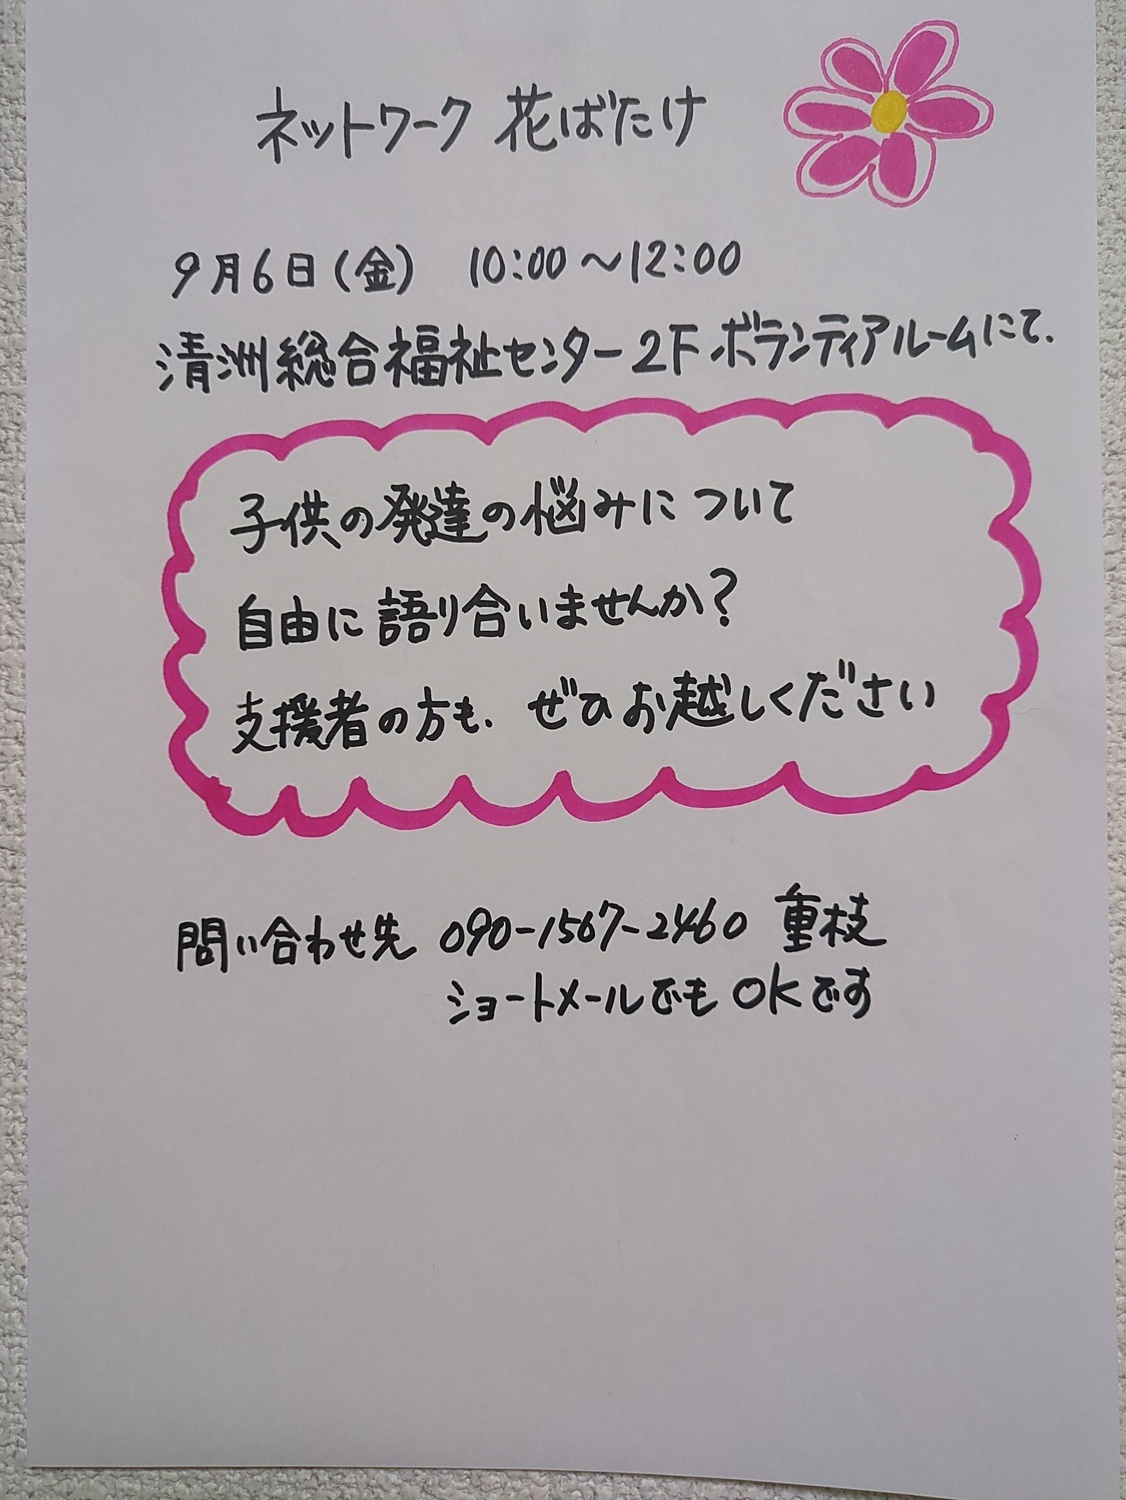 ネットワーク 花ばたけ
9月6日(金) 10:00〜12:00
清洲総合福祉センター2Fボランティアルームにて.
子供の発達の悩みについて
自由に語り合いませんか?
支援者の方も、ぜひお越しください
問い合わせ先 090-1567-2460 重枝
ショートメールでもOKです